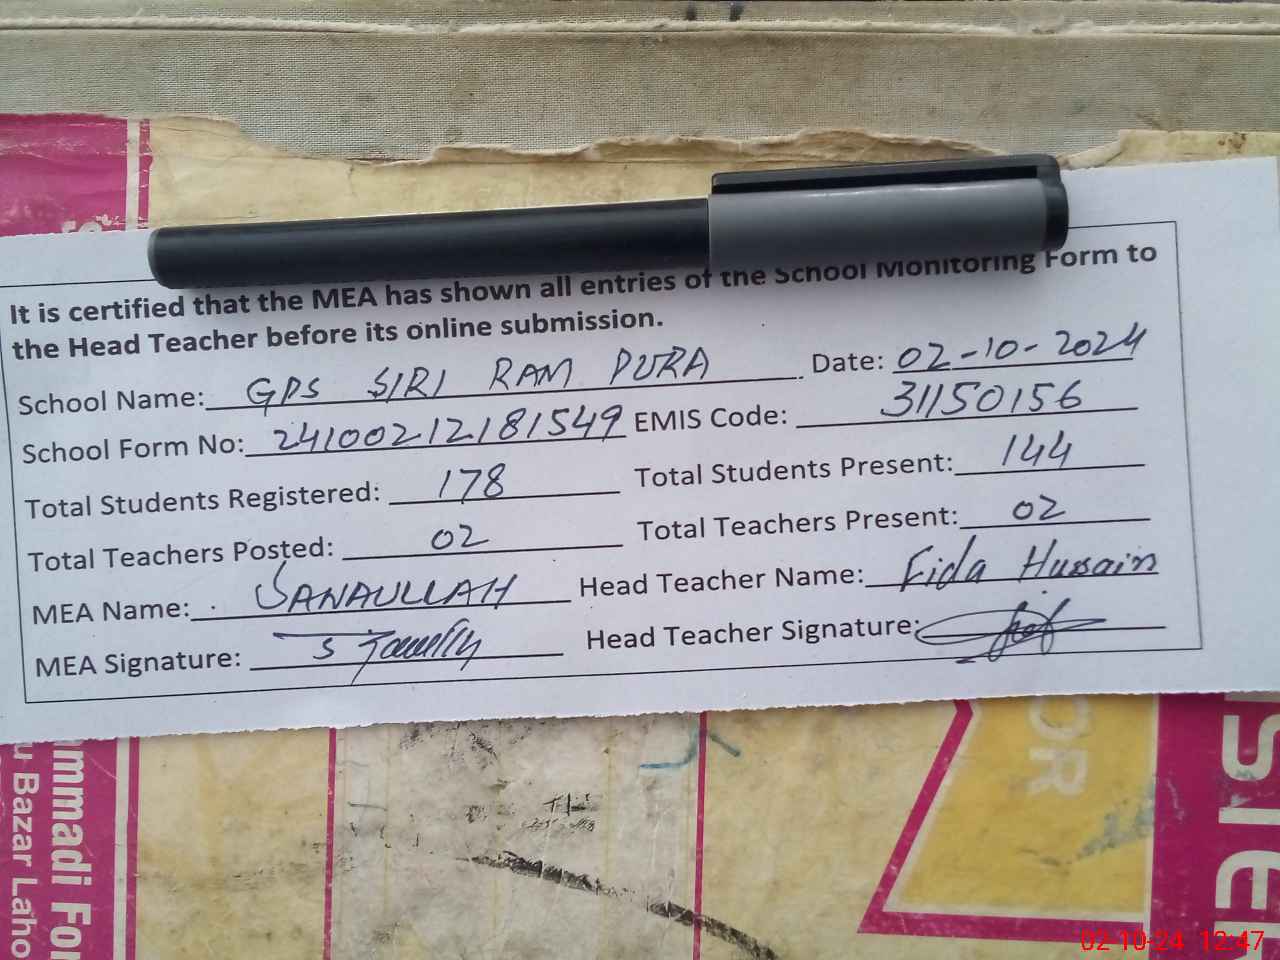 It is certified that the MEA has shown all entries of the School Monitoring Form to
the Head Teacher before its online submission.
School Name: GPS SIRI RAM PURA Date: 02-10-2024
School Form No: 24100212181549 EMIS Code: 31150156
Total Students Registered: 178 Total Students Present: 144
Total Teachers Posted: 02 Total Teachers Present: 02
MEA Name: SANAULLAH Head Teacher Name: Fida Hussain
MEA Signature: Head Teacher Signature:
mmadi For
u Bazar Laho
OR
ISTER
02-10-24 12:47